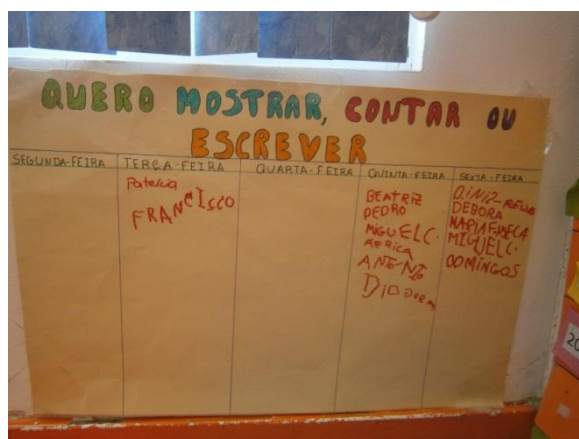 QUERO MOSTRAR, CONTAR OU
ESCREVER
SEGUNDA-FEIRA TERÇA-FEIRA QUARTA-FEIRA QUINTA-FEIRA SEXTA-FEIRA
Patrícia
FRANCISCO
BEATRIZ
PEDRO
MIGUEL C.
ANTÓNIO
DINIZ
DEBORA
MARIA FONSECA
MIGUEL C.
DOMINGOS
20